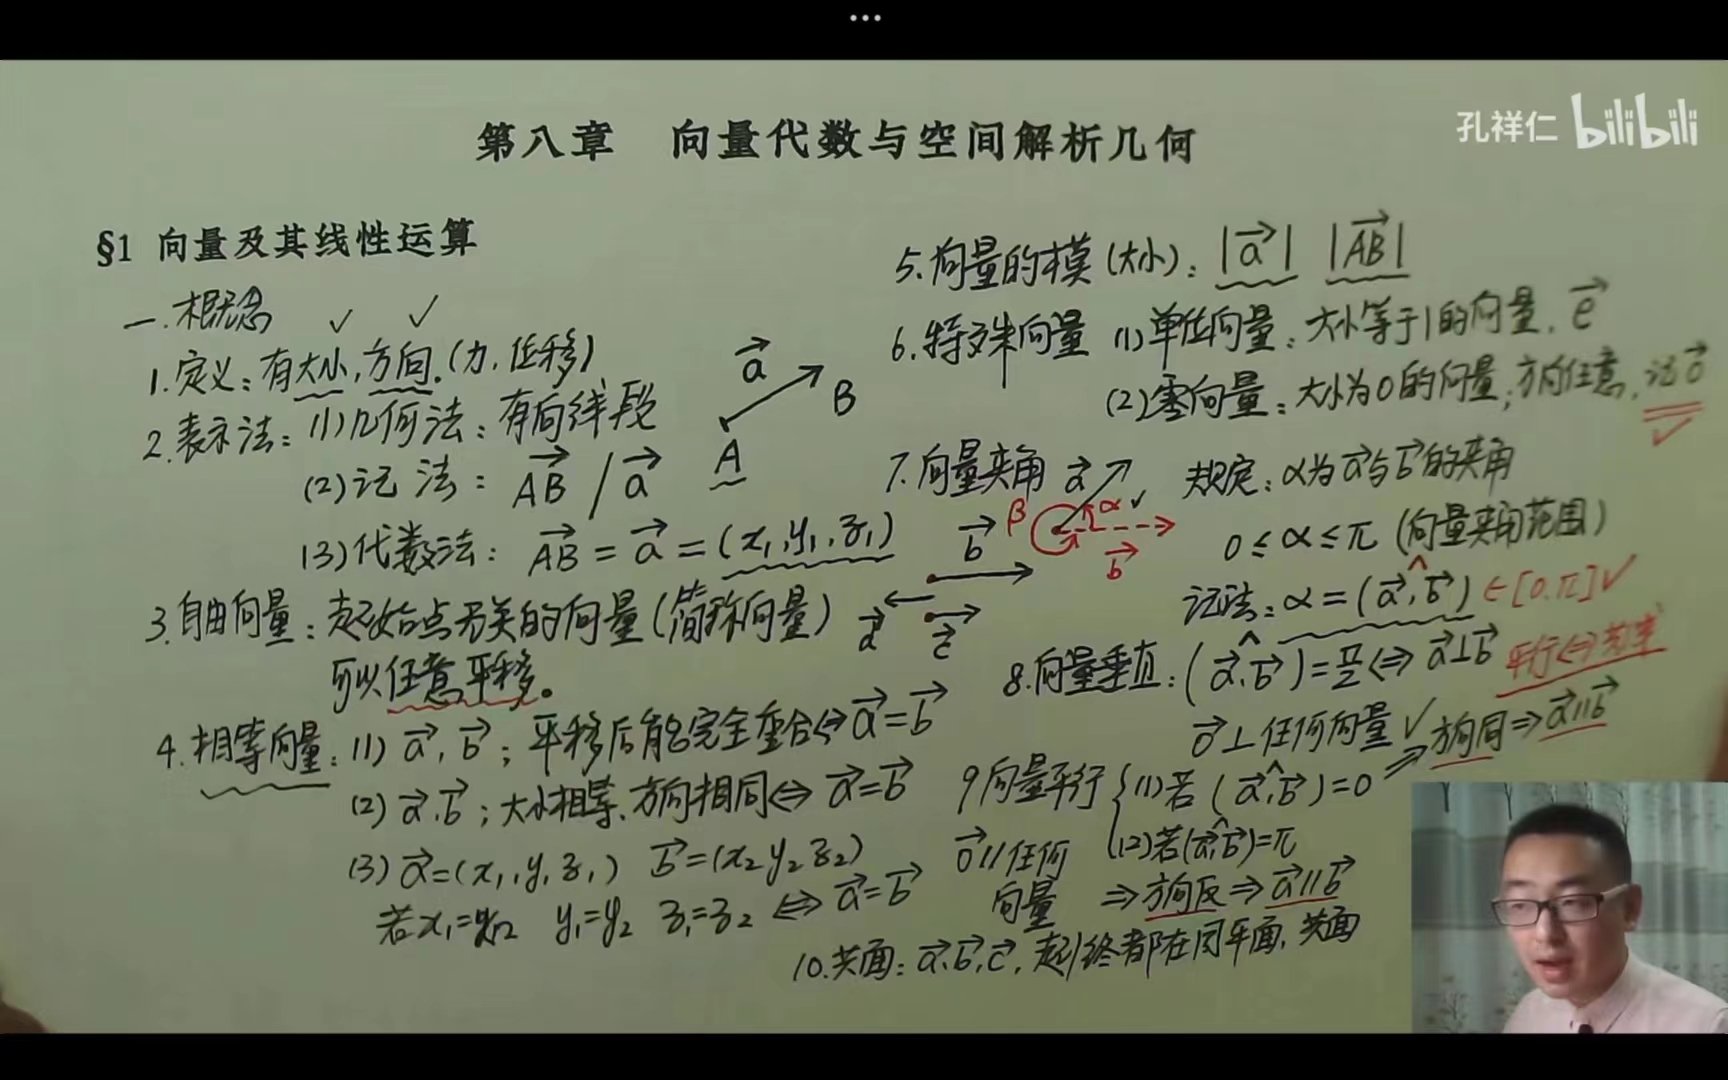 孔祥仁 bilibili
第八章 向量代数与空间解析几何
§1 向量及其线性运算
一.概念 ✓ ✓
1.定义:有大小,方向.(力,位移)
2.表示法:(1)几何法:有向线段
(2)记 法: AB / a
(3)代数法: AB = a = (x₁,y₁,z₁)
a
A
B
3.自由向量:与起始点无关的向量(简称向量)
可以任意平移。
4.相等向量:(1) a, b ; 平移后能完全重合⇔a=b
(2) a,b ; 大小相等,方向相同⇔ a=b
(3) a=(x₁,y₁z₁) b=(x₂y₂z₂)
若x₁=x₂ y₁=y₂ z₁=z₂ ⇔ a=b
5.向量的模(大小): |a| |AB|
6.特殊向量 (1)单位向量:大小等于1的向量. e
(2)零向量:大小为0的向量;方向任意.记0 ✓
7.向量夹角 a 规定:α为a与b的夹角
β α ✓
b
b
a
c
0≤α≤π (向量夹角范围)
记法:α=(a,b) ∈[0.π]✓
8.向量垂直:(a,b)=π/2⇔a⊥b
平行⇔共线
0⊥任何向量✓
9向量平行 {(1)若(a,b)=0 ⇒方向同⇒a//b
0//任何向量
(2)若(a,b)=π
⇒方向反⇒a//b
10.共面:a,b,c,起终都在同平面,共面